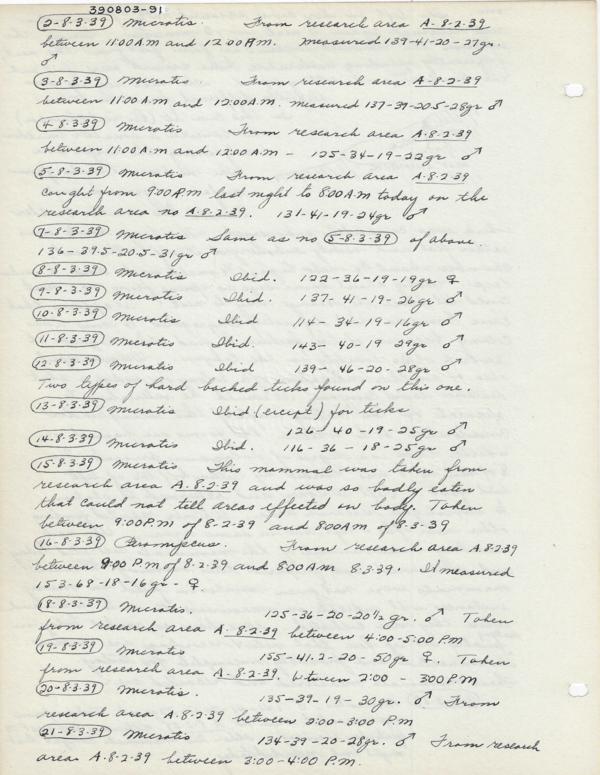 390803-91
2-8-3-39 Microtis. From research area A-8-2-39
between 11:00 A.M and 12:00 P.M. Measured 139-41-20-27gr.
♂
3-8-3-39 Microtis. From research area A-8-2-39
between 11:00 A.M and 12:00 A.M. measured 137-39-20.5-28gr ♂
4-8-3-39 Microtis From research area A.8.2.39
between 11:00 A.M and 12:00 A.M - 125-34-19-22gr ♂
5-8-3-39 Microtis From research area A.8.2.39
caught from 9:00 P.M. last night to 8:00 A.M today on the
research area no A.8.2.39. 131-41-19-24gr ♂
7-8-3-39 Microtis Same as no 5-8-3-39 of above.
136-39.5-20.5-31gr ♂
8-8-3-39 Microtis Ibid. 122-36-19-19gr ♀
9-8-3-39 Microtis Ibid. 137-41-19-26gr ♂
10-8-3-39 Microtis Ibid 114-34-19-16gr ♂
11-8-3-39 Microtis Ibid. 143-40-19 29gr ♂
12-8-3-39 Microtis Ibid 139-46-20-28gr ♂
Two types of hard backed ticks found on this one.
13-8-3-39 Microtis Ibid (except) for ticks
126-40-19-25gr ♂
14-8-3-39 Microtis Ibid. 116-36-18-25gr ♂
15-8-3-39 Microtis This mammal was taken from
research area A.8-2-39 and was so badly eaten
that could not tell areas effected on body. Taken
between 9:00 P.M of 8-2-39 and 8:00 A.M of 8-3-39
16-8-3-39 Peromyscus. From research area A.8-2-39
between 9:00 P.M of 8-2-39 and 8:00 A.M 8-3-39. It measured
153-68-18-16gr-♀.
18-8-3-39 Microtis. 125-36-20-20½gr. ♂ Taken
from research area A. 8-2-39 between 4:00-5:00 P.M
19-8-3-39 Microtis 155-41.2-20-50gr ♀. Taken
from research area A.8-2-39. between 2:00 - 300 P.M
20-8-3-39 Microtis. 135-39-19-30gr. ♂ From
research area A-8-2-39 between 2:00-3:00 P.M
21-8-3-39 Microtis 134-39-20-28gr. ♂ From research
area A-8-2-39 between 3:00-4:00 P.M.